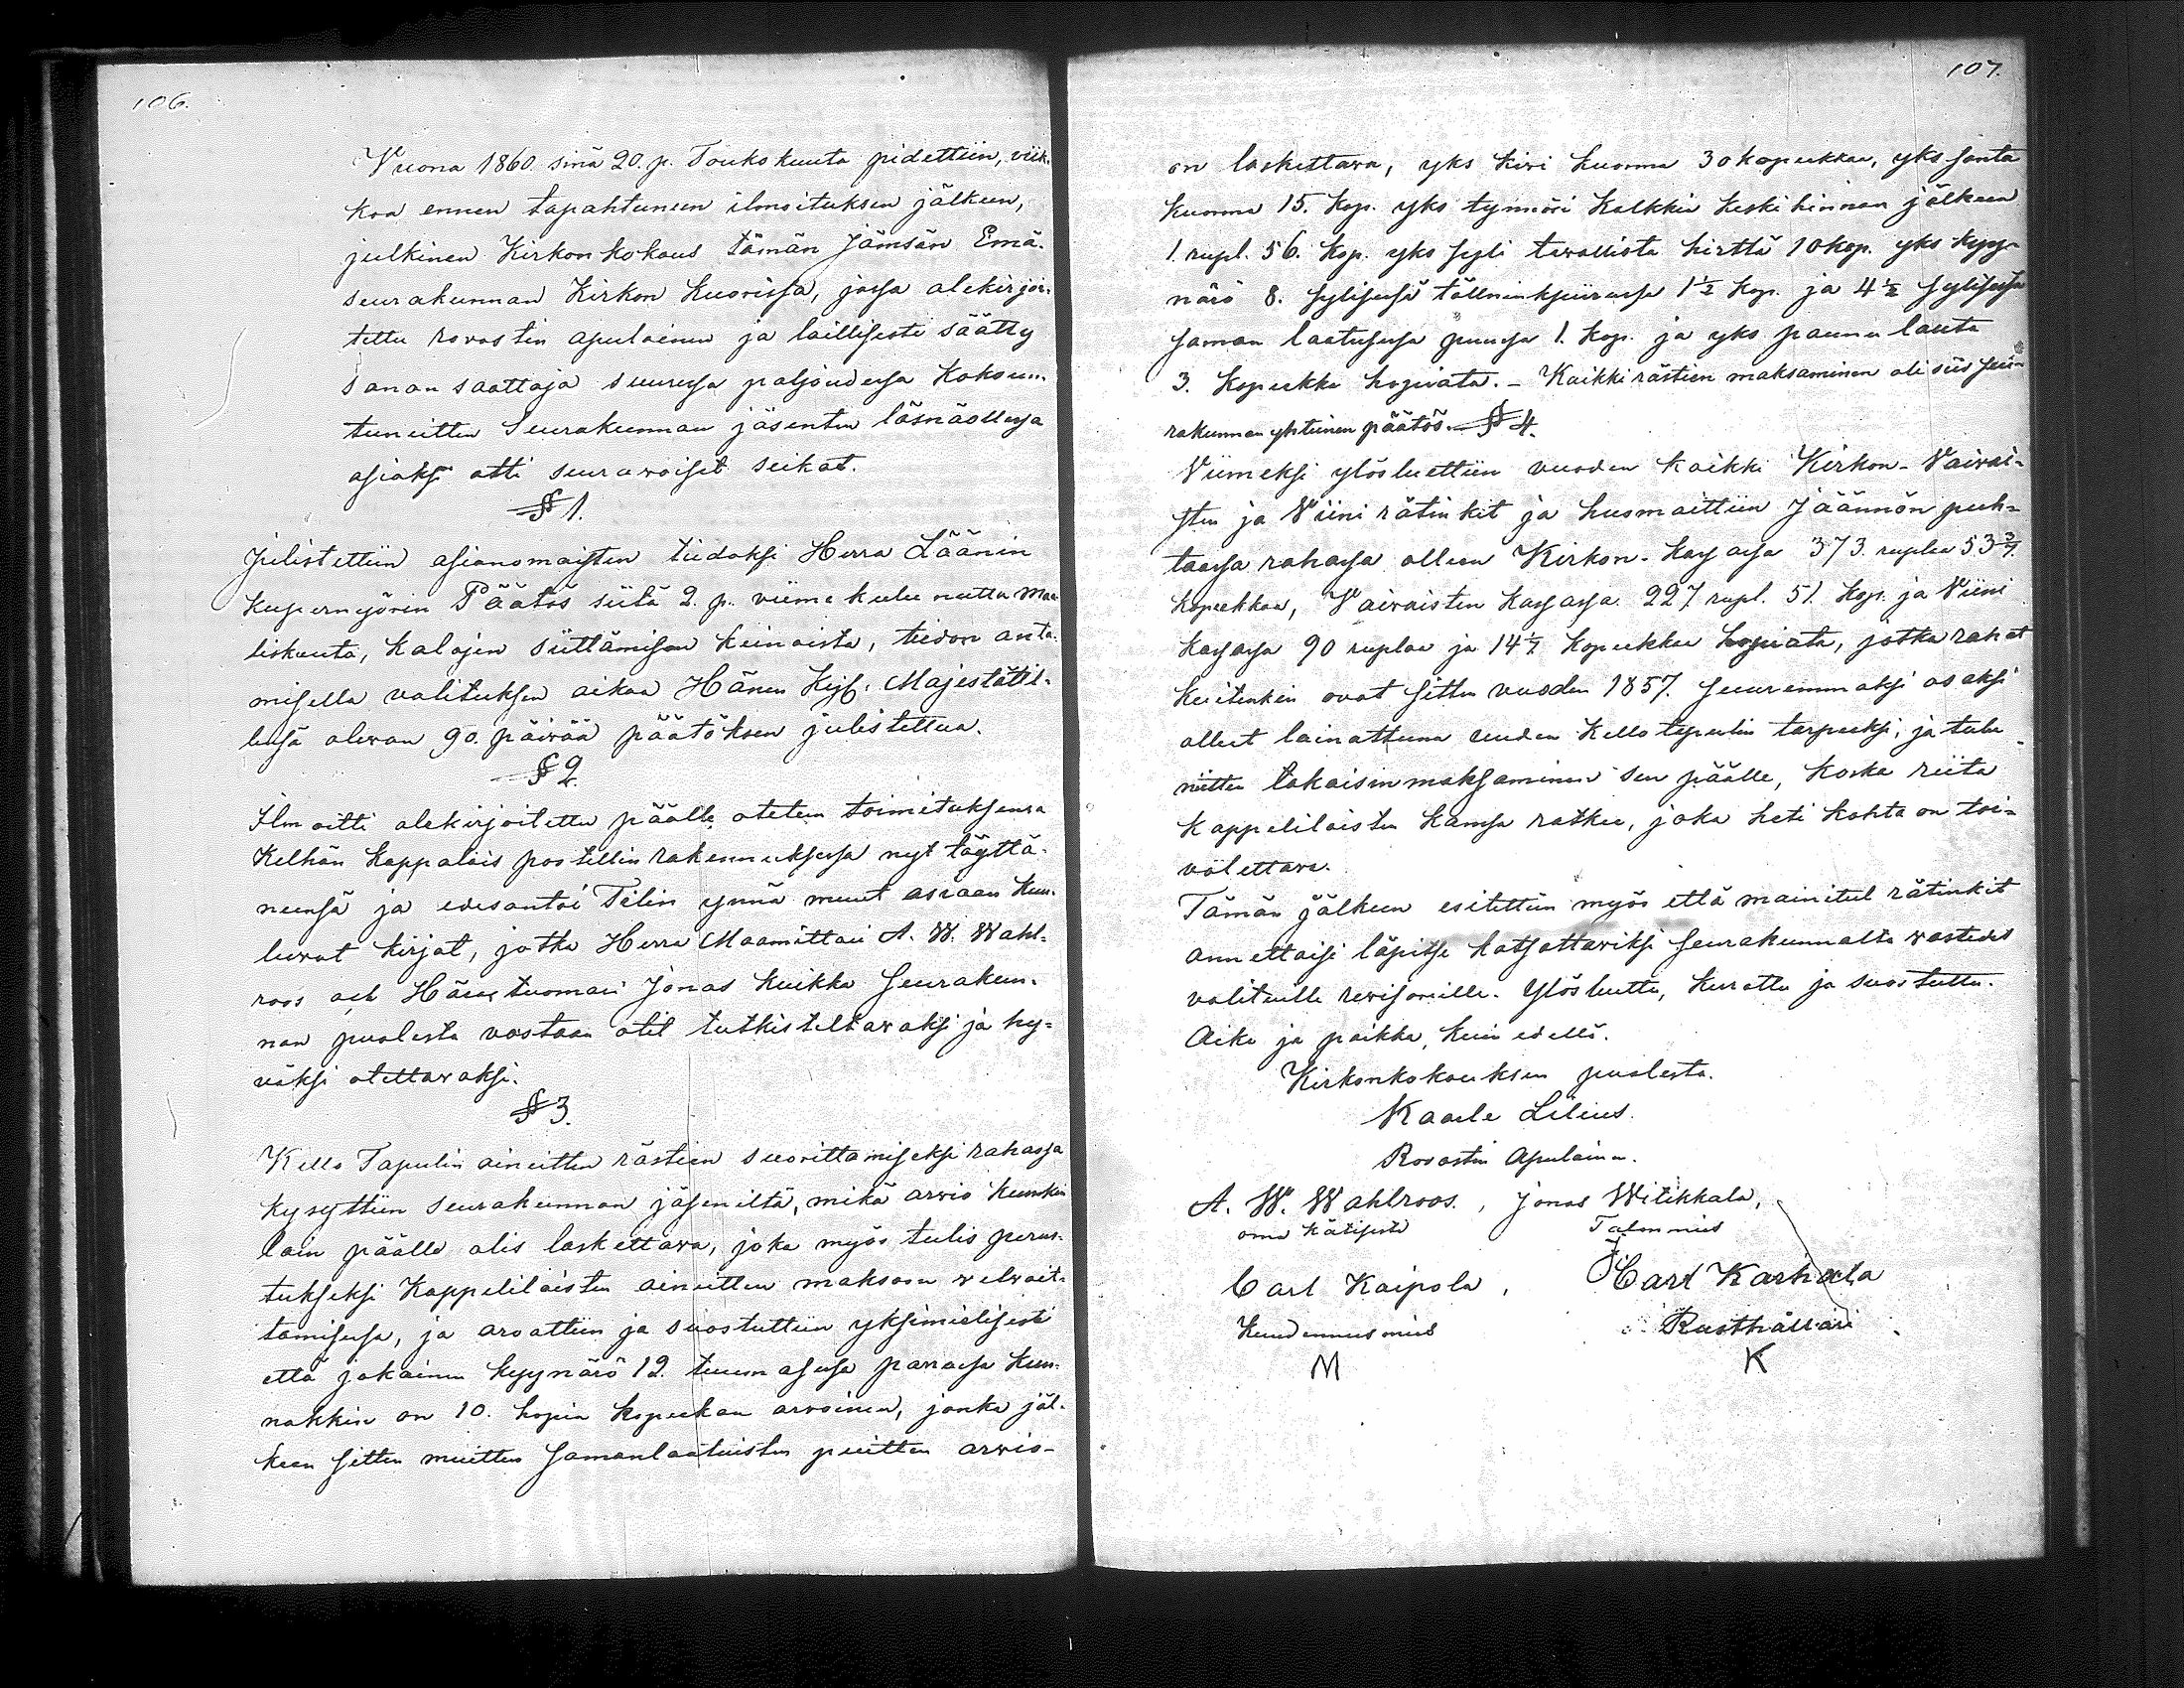 106.
Vuona 1860. sinä 20. p. Toukokuuta pidettiin, viik-
koa ennen tapahtuneen ilmoituksen jälkeen,
julkinen Kirkonkokous tämän Jämsän Emä-
seurakunnan Kirkon Kuorissa, jossa alekirjoi-
tettu rovastin apulainen ja laillisesti säätty
sanan saattaja suuressa paljoudessa Kokoun-
tuneitten Seurakunnan jäsenten läsnäollessa
asiaksi otti seurawaiset seikat.
§ 1.
Julistettiin asianomaisten tiedoksi Herra Läänin
kupernyörin Päätös siitä 2. p. viime kulunutta Maa-
liskuuta, Kalojen siittämisen keinoista, tiedon anta-
misella valituksen aikaa Hänen Keis. Majestätil-
lensä olevan 90. päivää päätöksen julistettua.
§ 2.
Ilmoitti alekirjoitettu päälle otetun toimituksensa
Kelhän kappalais postellin rakennuksessa nyt täyttä-
neensä ja edesantoi Tilin ynnä muut asiaan kuu-
luvat kirjat, jotka Herra Maamittari A. W. Wahl-
roos och Häradstuomari Jonas Kuikka Seurakun-
nan puolesta vastaan otit tutkisteltawaksi ja hy-
väksi otettawaksi.
§ 3.
Kello Tapulin aineitten rästien suorittamiseksi rahassa
kysyttiin seurakunnan jäseniltä, mikä arvio kunkin
lain päälle olis laskettava, joka myös tulis perus-
tukseksi Kappelilaisten aineitten maksoon welvoit-
tamisessa, ja arvattiin ja suostuttiin yksimielisesti
että jokainen kyynärö 12. tuumasessa parrussa kun-
nakkin on 10. hopia kopeekan arvoinen, jonka jäl-
keen sitten muitten samanlaatuisten puitten arvio-
107.
on laskettava, yks kivi kuorma 30 kopeekkaa, yks santa
kuorma 15. kop. yks tynnöri Kalkkia keskihinnan jälkeen
1. rupl. 56. kop. yks syli tavallista hirttä 10 kop. yks kyy-
närö 8. sylisessä tällninkspiirussa 1½ kop. ja 4½ sylisessä
saman laatusessa puussa 1. kop. ja yks paunu lauta
3. kopeekka hopiata. - Kaikki rästien maksaminen oli siis seu-
rakunnan yhteinen päätös. § 4.
Viimeksi ylösluettiin vuoden kaikki Kirkon- Vaivai-
sten ja Viini rätinkit ja huomaittiin Jäännön puh-
taassa rahassa olleen Kirkon- kassassa 373. ruplaa 53 3/7.
kopeekkaa, Vaivaisten kassassa 227 rupl. 51. kop. ja Viini
kassassa 90 ruplaa ja 14 1/7 kopeekkaa hopiata, jotka rahat
kuitenkin ovat sitten vuoden 1857. suuremmaksi osaksi
olleet lainattuna uuden Kellotapulin tarpeeksi, ja tulee
niitten takaisinmaksaminen sen päälle, koska riita
kappelilaisten kanssa ratkee, joka heti kohta on toi-
völettava.
Tämän jälkeen esitettiin myös että mainitut rätinkit
annettaisi läpitse katsottaviksi seurakunnalta vastedes
valituille revisorille. Ylösluettu, kuultu ja suostuttu.
Aika ja paikka, kuin edellä.
Kirkonkokouksen puolesta.
Kaarle Lilius.
Rovastin Apulainen.
A. W. Wahlroos. , Jonas Witikkala,
oma kätisesti Talonmies
Carl Kaipola , Carl Karhala
Kuudennusmies Rusthållari
M K